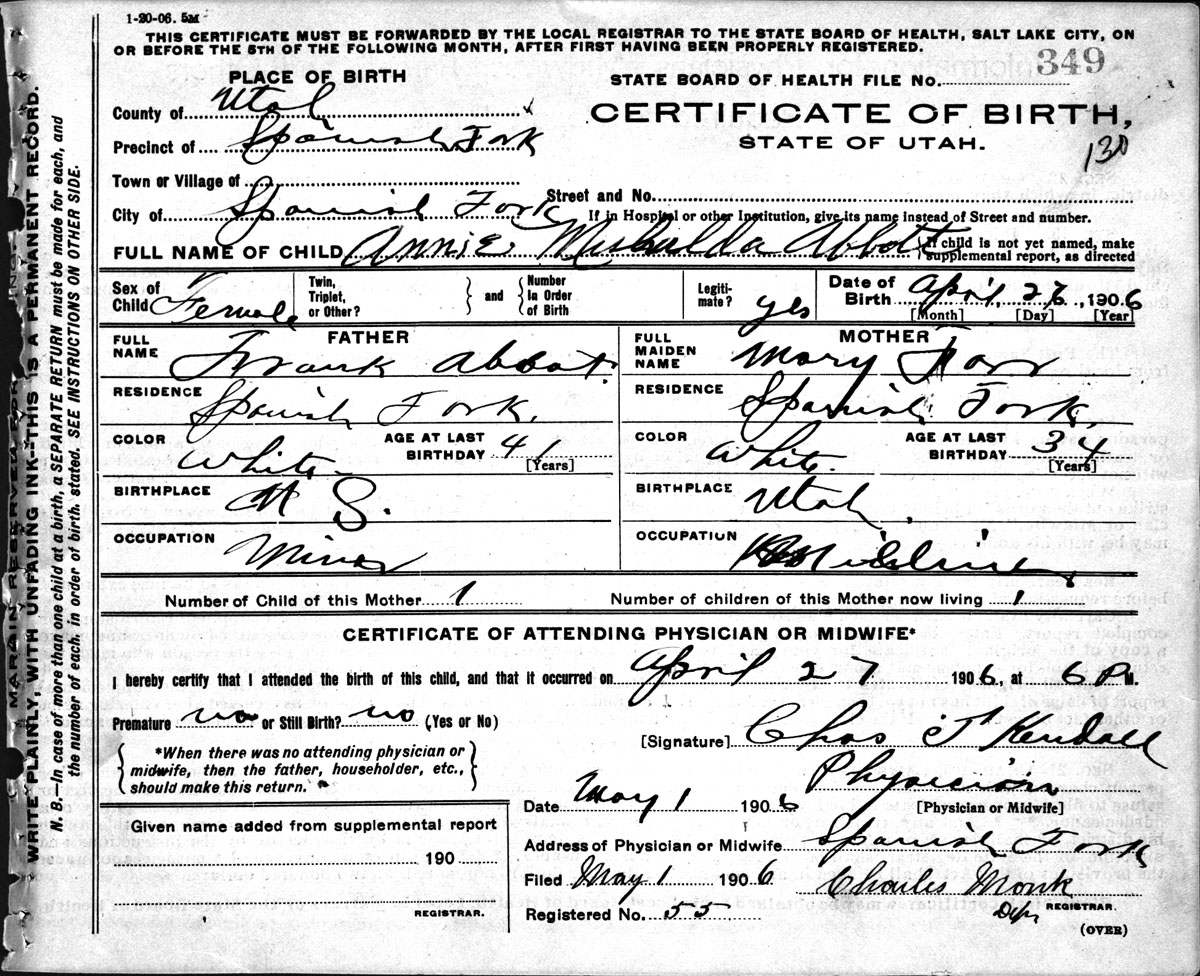 1-20-06. 5M
THIS CERTIFICATE MUST BE FORWARDED BY THE LOCAL REGISTRAR TO THE STATE BOARD OF HEALTH, SALT LAKE CITY, ON
OR BEFORE THE 5TH OF THE FOLLOWING MONTH, AFTER FIRST HAVING BEEN PROPERLY REGISTERED.
PLACE OF BIRTH
STATE BOARD OF HEALTH FILE No. 349
County of Utah
CERTIFICATE OF BIRTH,
Precinct of Spanish Fork
STATE OF UTAH.
130
Town or Village of
Street and No.
City of Spanish Fork
If in Hospital or other Institution, give its name instead of Street and number.
FULL NAME OF CHILD Annie Abbott
{If child is not yet named, make
supplemental report, as directed
Sex of Child Female
Twin, Triplet, or Other? } and { Number In Order of Birth
Legiti-mate? yes
Date of Birth April, 27, 1906
[Month] [Day] [Year]
FATHER
FULL NAME Frank Abbot.
RESIDENCE Spanish Fork.
COLOR White. AGE AT LAST BIRTHDAY 41 [Years]
BIRTHPLACE
OCCUPATION Miner
MOTHER
FULL MAIDEN NAME Mary
RESIDENCE Spanish Fork.
COLOR White. AGE AT LAST BIRTHDAY 34 [Years]
BIRTHPLACE Utah.
OCCUPATION
Number of Child of this Mother 1
Number of children of this Mother now living 1
CERTIFICATE OF ATTENDING PHYSICIAN OR MIDWIFE*
I hereby certify that I attended the birth of this child, and that it occurred on April 27 1906, at 6 P M.
Premature no or Still Birth? no (Yes or No)
[Signature] Chas T Kendall
{ *When there was no attending physician or
midwife, then the father, householder, etc.,
should make this return. }
Physician
[Physician or Midwife]
Date May 1 1906
Given name added from supplemental report
190
REGISTRAR.
Address of Physician or Midwife Spanish Fork
Filed May 1 1906 Charles Monk
Registered No. 55 Dep REGISTRAR.
(OVER)
MARGIN RESERVED FOR
WRITE PLAINLY, WITH UNFADING INK—THIS IS A PERMANENT RECORD.
N. B.—In case of more than one child at a birth, a SEPARATE RETURN must be made for each, and
the number of each, in order of birth, stated. SEE INSTRUCTIONS ON OTHER SIDE.